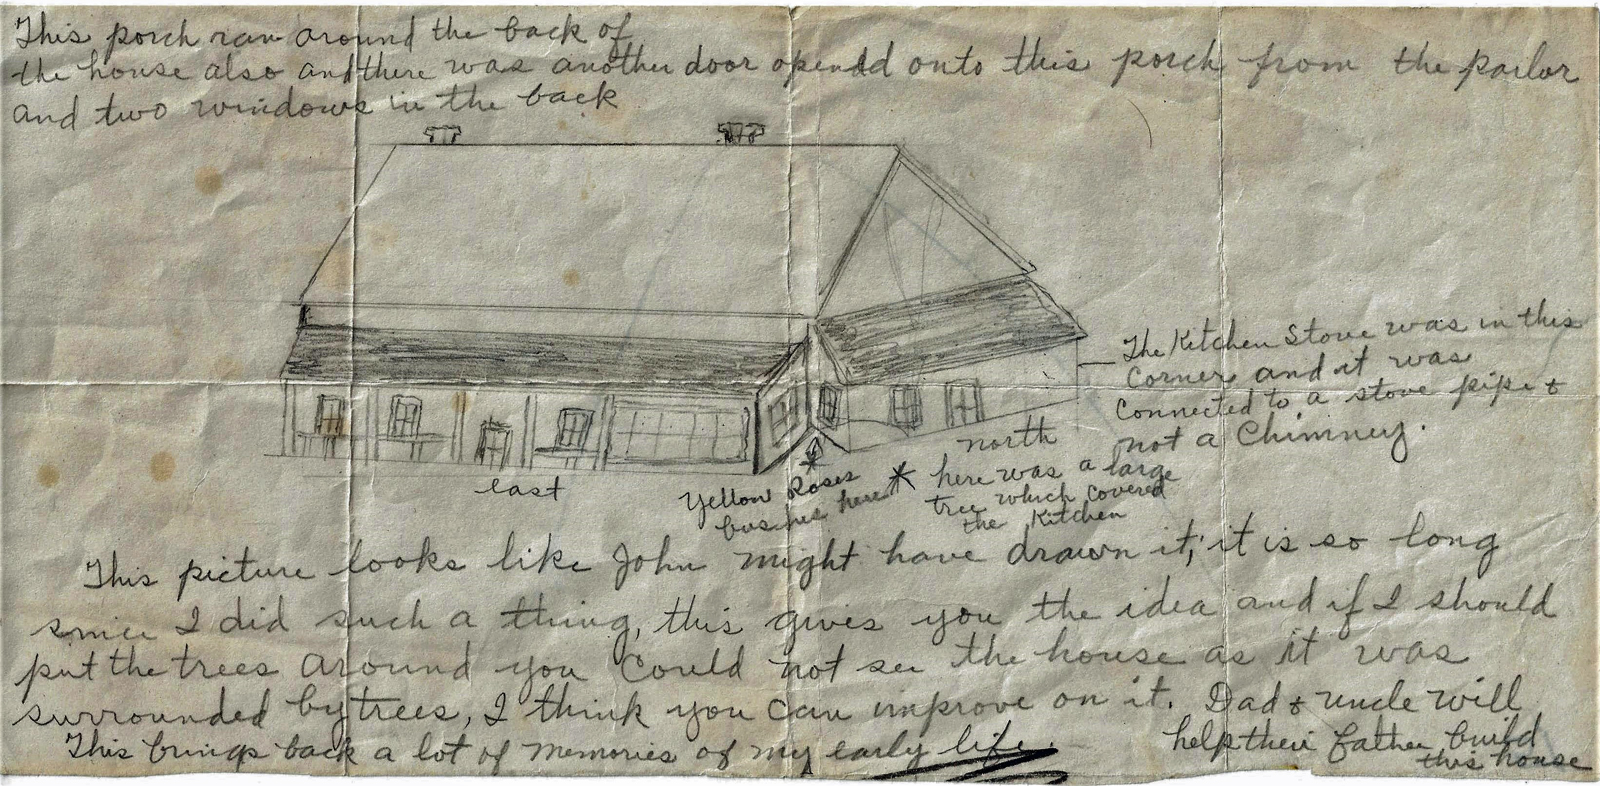 This porch ran around the back of
the house also and there was another door opened onto this porch from the parlor
and two windows in the back
The Kitchen Stove was in this
Corner and it was
Connected to a stove pipe &
not a Chimney.
north
east
Yellow Roses
bushes here
here was a large
tree which covered
the Kitchen
This picture looks like John might have drawn it, it is so long
since I did such a thing, this gives you the idea and if I should
put the trees around you could not see the house as it was
surrounded by trees, I think you can improve on it. Dad & uncle will
help their father build
this house
This brings back a lot of memories of my early life.